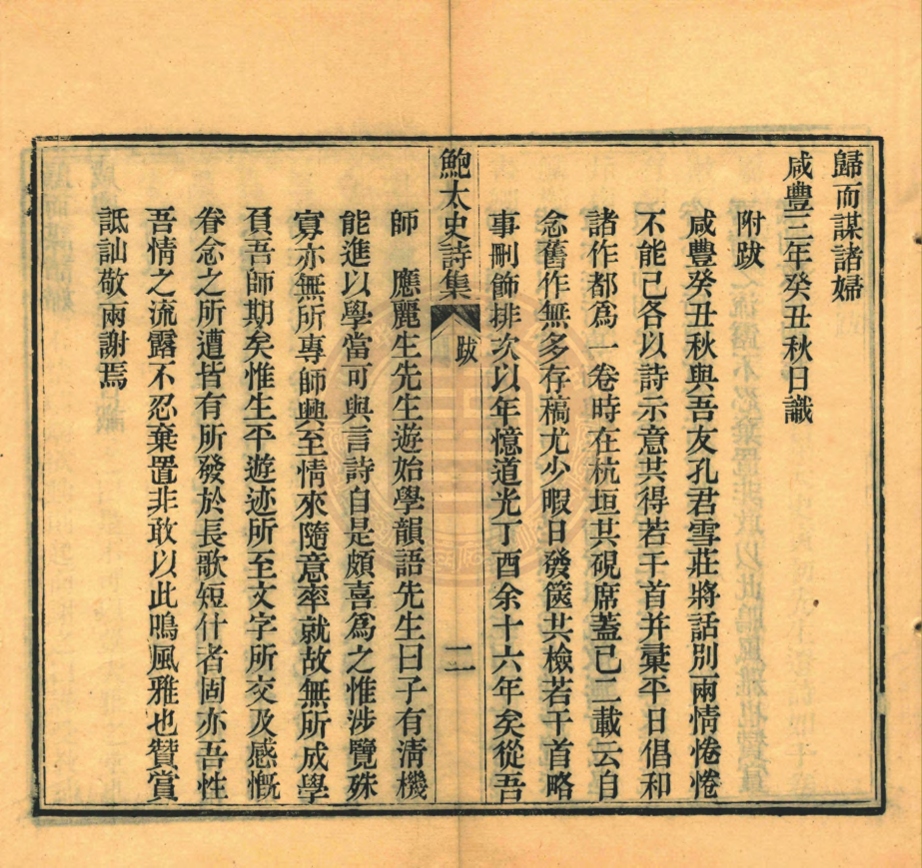 歸而謀諸婦
咸豐三年癸丑秋日識
附跋
咸豐癸丑秋與吾友孔君雪莊將話別兩情惓惓
不能已各以詩示意共得若干首并彙平日倡和
諸作都爲一卷時在杭垣共硯席蓋已二載云自
念舊作無多存稿尤少暇日發篋共檢若干首略
事刪飾排次以年憶道光丁酉余十六年矣從吾
鮑太史詩集 跋 二
師 應麗生先生遊始學韻語先生曰子有淸機
能進以學當可與言詩自是頗喜爲之惟涉覽殊
寡亦無所專師興至情來隨意率就故無所成學
負吾師期矣惟生平遊迹所至文字所交及感慨
眷念之所遭皆有所發於長歌短什者固亦吾性
吾情之流露不忍棄置非敢以此鳴風雅也贊賞
詆訕敬兩謝焉